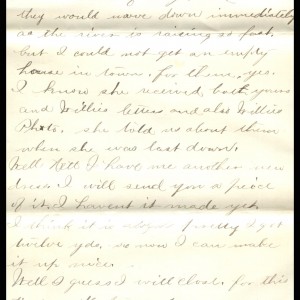 they would move down immediately
as the river is raising so fast,
but I could not get an empty
house in town, for them, yes.
I know she received both yours
and Willies letters and also Willies
Photo, she told us about them
when she was last down.
Well Nell I have me another new
dress I will send you a peice
of it, I havent it made yet
I think it is pretty I got
twelve yds, so now I can make
it up nice.
Well I guess I will close, for this